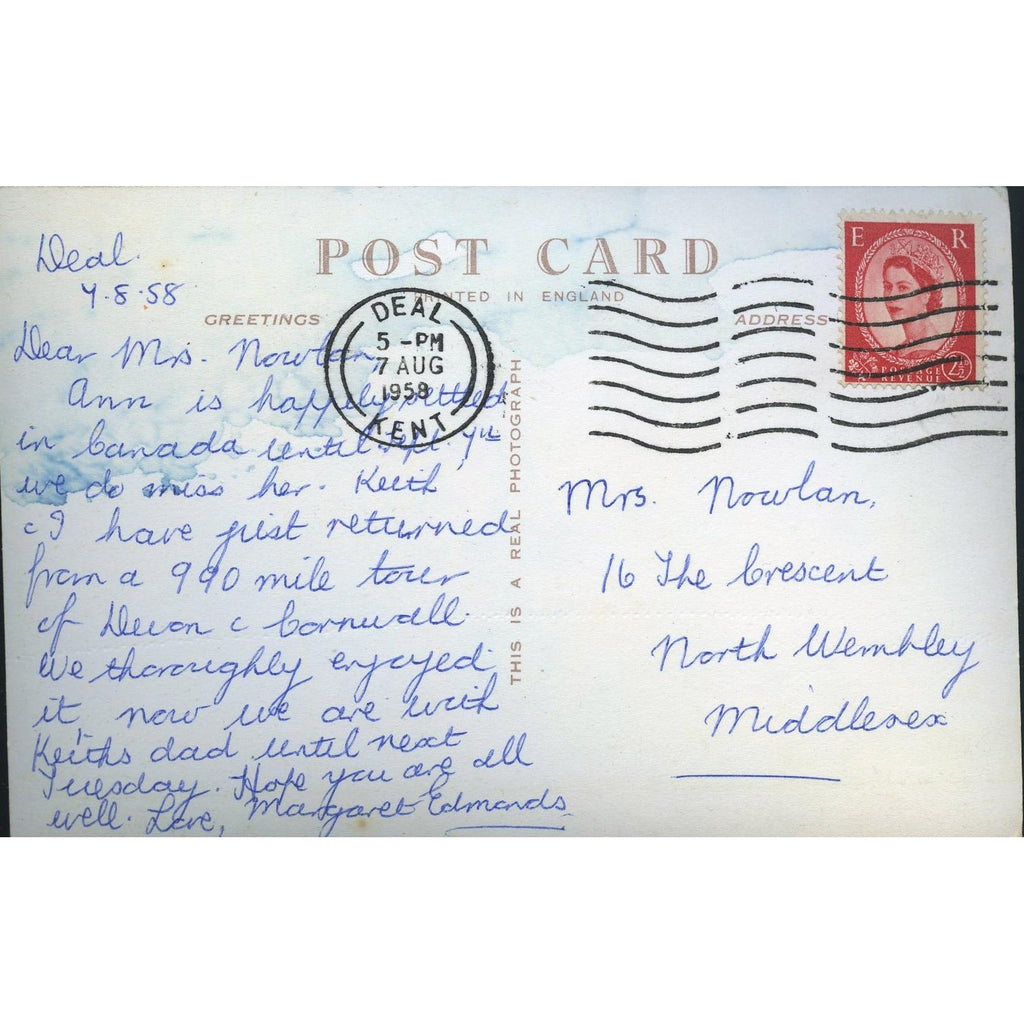 POST CARD
PRINTED IN ENGLAND
GREETINGS
ADDRESS
THIS IS A REAL PHOTOGRAPH
DEAL
5 - PM
7 AUG
1958
KENT
E R
POSTAGE
REVENUE
2½
Deal.
7.8.58
Dear Mrs. Nowlan,
Ann is happily settled
in Canada until Spt. 7th
we do miss her. Keith
& I have just returned
from a 990 mile tour
of Devon & Cornwall.
We thoroughly enjoyed
it, now we are with
Keiths dad until next
Tuesday. Hope you are all
well. Love, Margaret Edmonds.
Mrs. Nowlan,
16 The Crescent
North Wembley
Middlesex